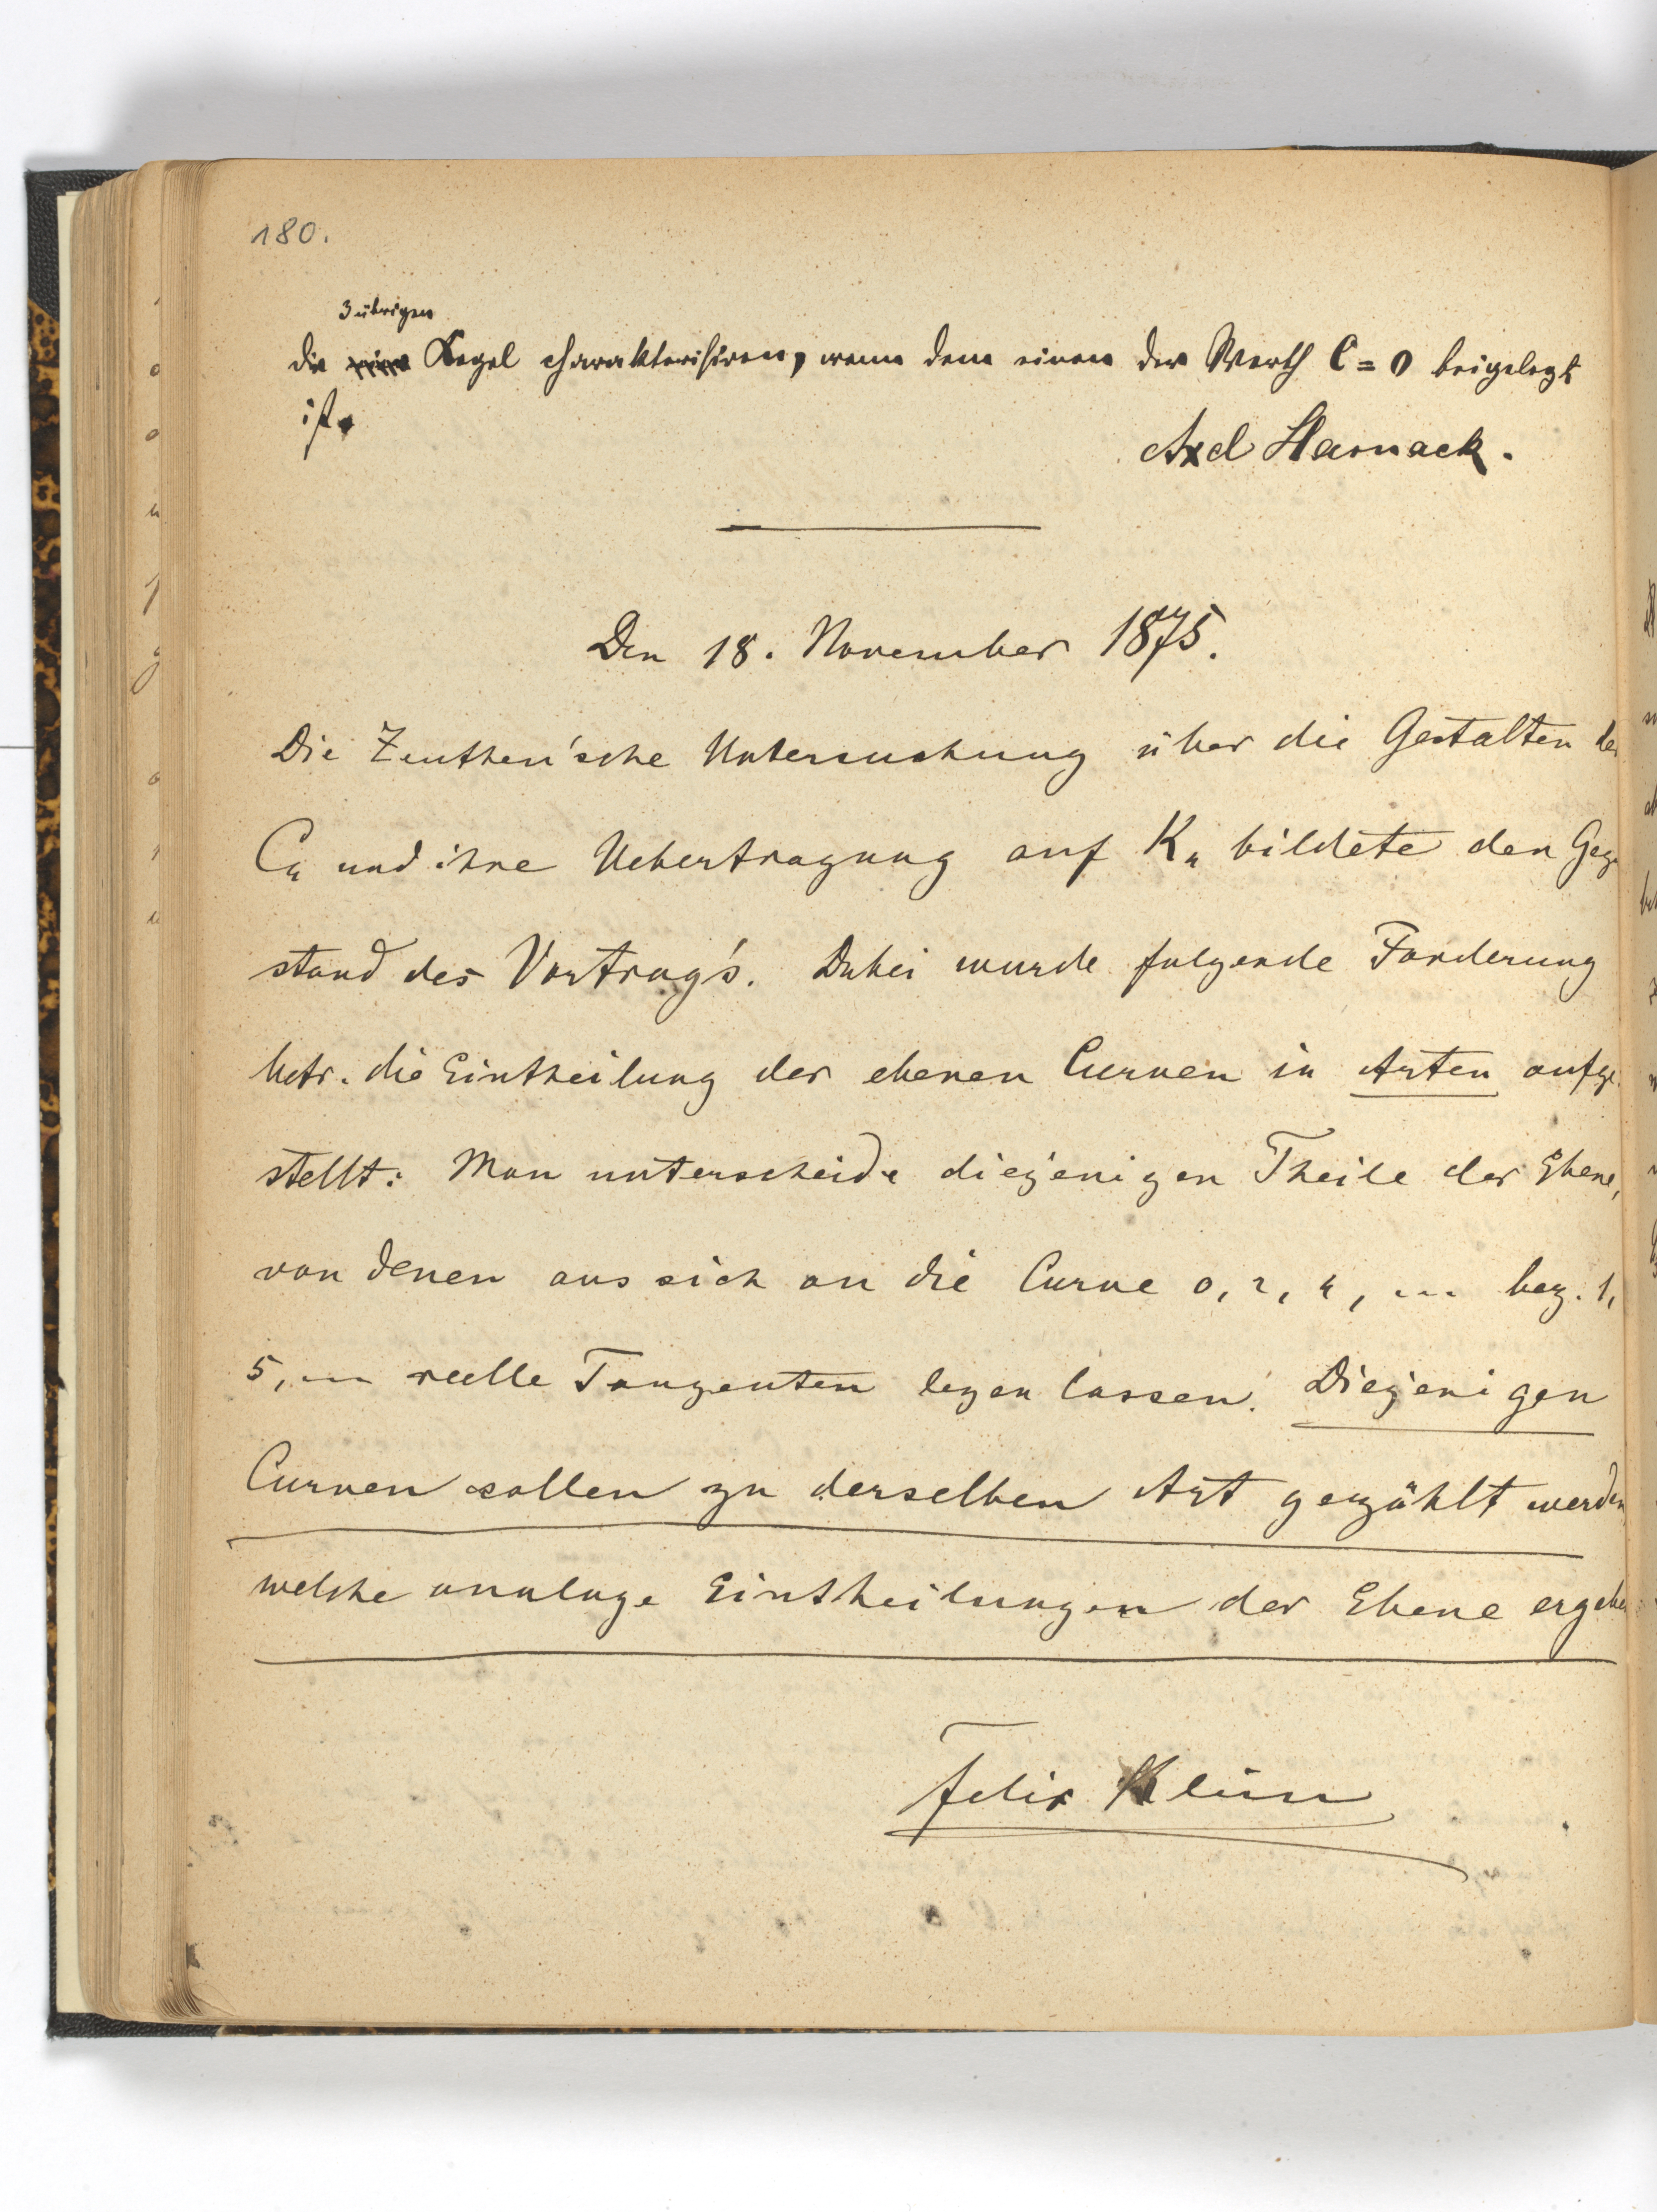 180.
3 übrigen
die Kegel charakterisiren, wenn dem einen der Werth C = 0 beigelegt
ist.
Axel Harnack.
Den 18. November 1875.
Die Zeuthen'sche Untersuchung über die Gestalten der
C₄ und ihre Uebertragung auf K₄ bildete den Gegen
stand des Vortrag's. Dabei wurde folgende Forderung
betr. die Eintheilung der ebenen Curven in Arten aufge
stellt: Man unterscheide diejenigen Theile der Ebene,
von denen aus sich an die Curve 0, 2, 4, ... bez. 1,
5, ... reelle Tangenten legen lassen. Diejenigen
Curven sollen zu derselben Art gezählt werden,
welche analoge Eintheilungen der Ebene ergeben
Felix Klein